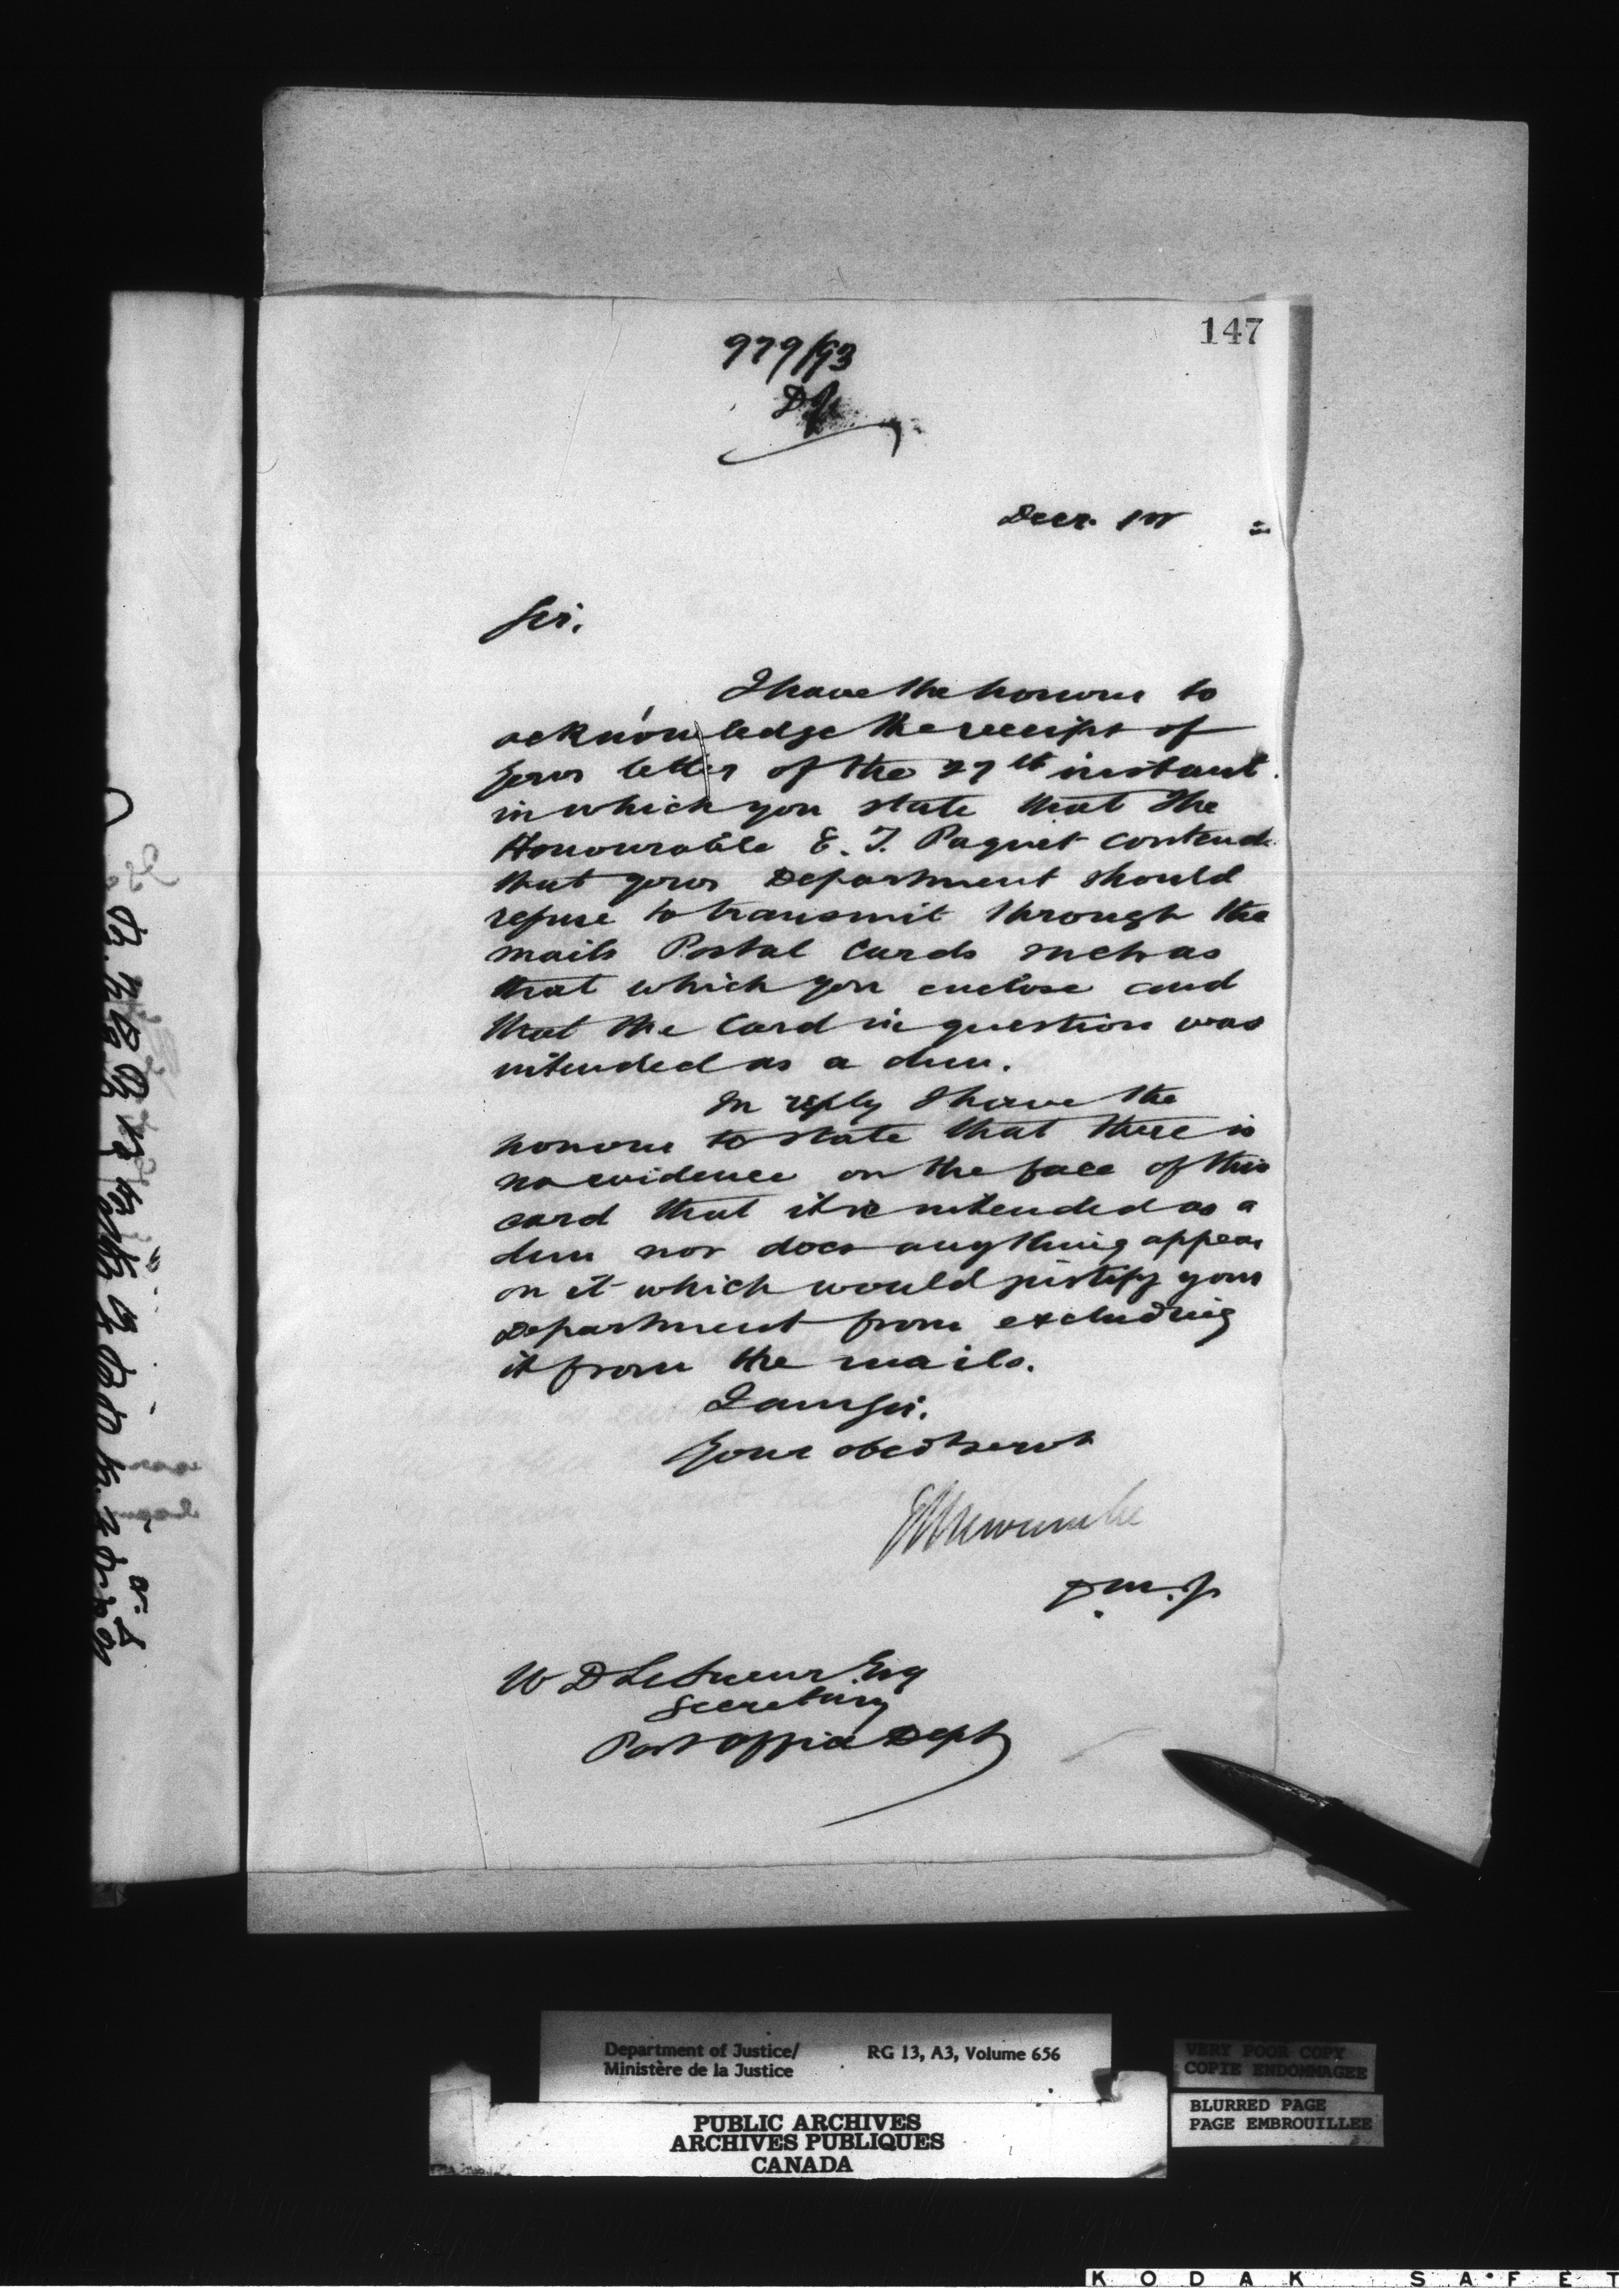 147
979/93
Decr. 1st
Sir.
I have the honour to
acknowledge the receipt of
your letter of the 27th instant
in which you state that the
Honourable E. T. Paquet contends
that your Department should
refuse to transmit through the
mails Postal Cards such as
that which you enclose and
that the Card in question was
intended as a dun.
In reply I have the
honour to state that there is
no evidence on the face of this
card that it is intended as a
dun nor does anything appear
on it which would justify your
Department from excluding
it from the mails.
I am Sir.
Your obedt servt
E L Newcombe
D.M.J
W D LeSueur Esq
Secretary
Post Office Dept
Department of Justice/
Ministère de la Justice
RG 13, A3, Volume 656
VERY POOR COPY
COPIE ENDOMMAGEE
BLURRED PAGE
PAGE EMBROUILLEE
PUBLIC ARCHIVES
ARCHIVES PUBLIQUES
CANADA
KODAK SAFET